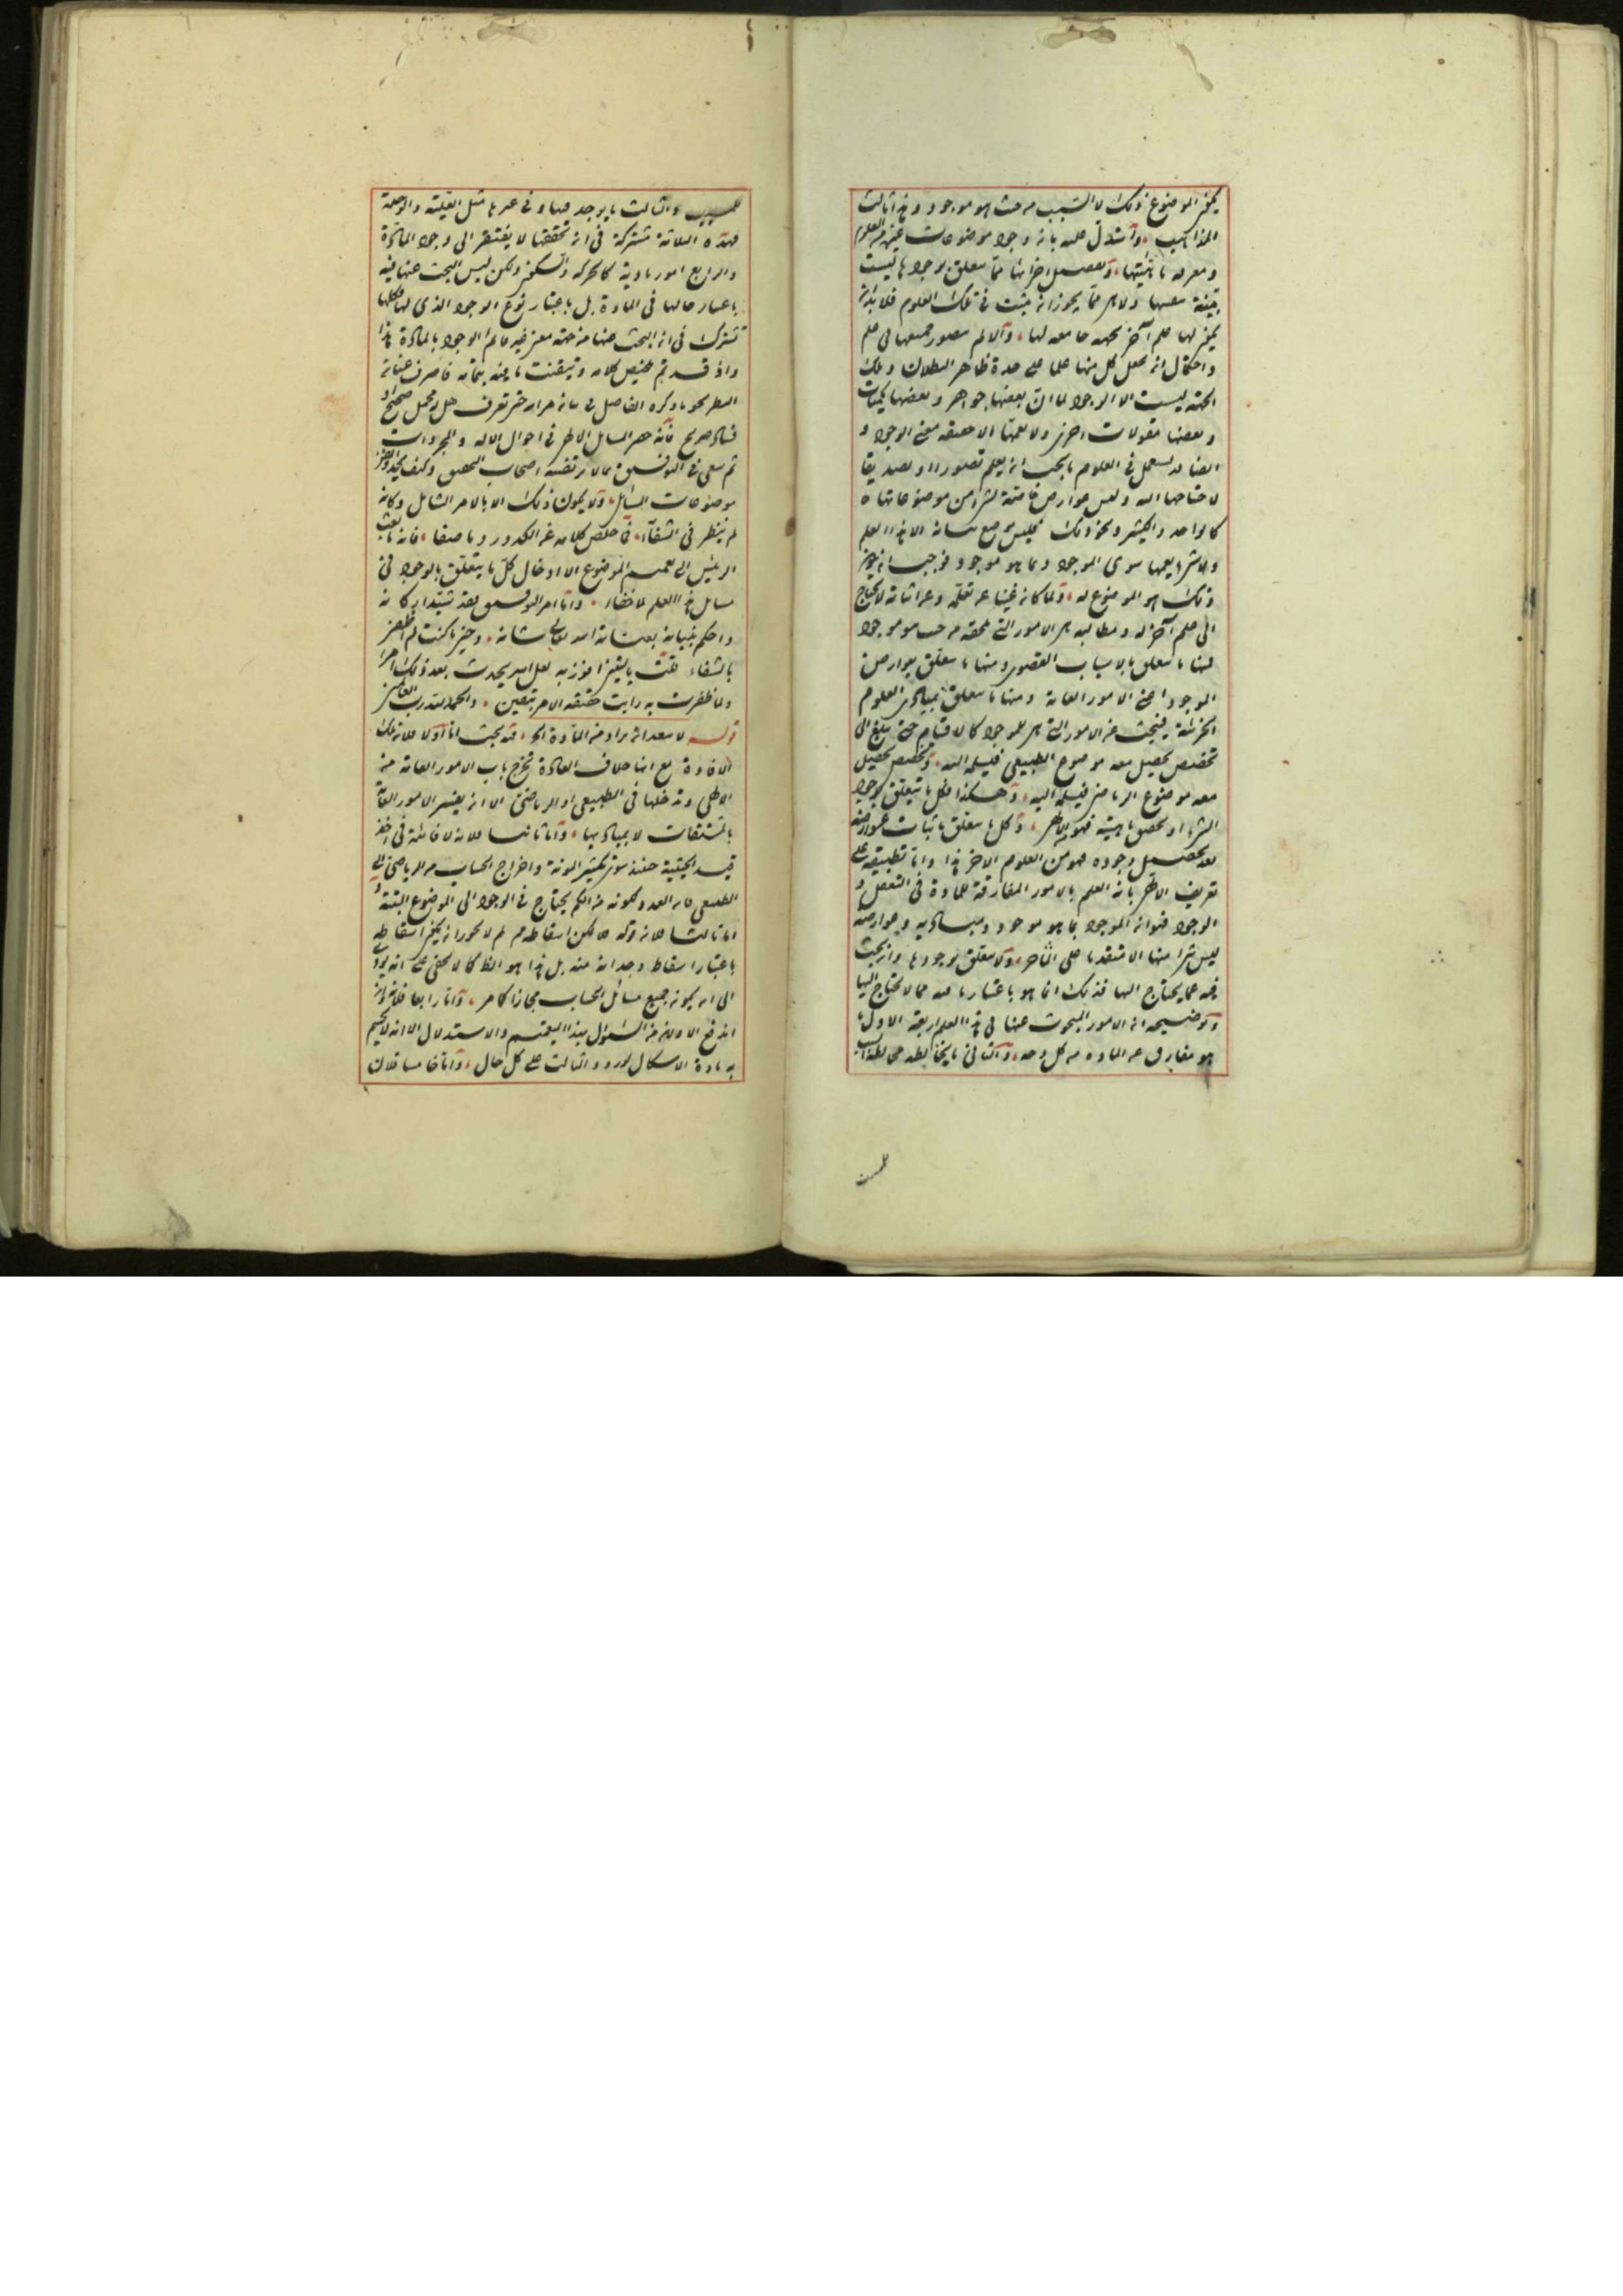 يكون الموضوع ذلك لا السبب من حيث هو موجود وهذا ثالث
المذاهب وآستدل عليه بانه وجود موضوعات غيره من العلوم
ومعرفة ماهيتها وتفصيل اجزائها مما يتعلق بوجودها ليست
بينة بنفسها ولا هي مما يجوز ان يثبت في تلك العلوم فلا بد ان
يكون لها علم آخر بجهة جامعة لها والا لم يتصور جمعها في علم
واحتمال ان يجعل كل منها علما على حدة ظاهر البطلان وتلك
الجهة ليست الا الوجود لما ان بعضها جواهر وبعضها كميات
وبعضها مقولات اخرى ولا يعمها الا حقيقة معنى الوجود و
ايضا قد يستعمل في العلوم ما يجب ان يعلم تصورا او تصديقا
لاحتياجها اليه وليس عوارض خاصة لشئ من موضوعاتها
كالواحد والكثير ونحو ذلك فليس موضع بيانه الا هذا العلم
ولا شئ يعمها سوى الموجود بما هو موجود فوجب ان يكون
ذلك هو الموضوع له ولما كان غنيا عن تعلمه وعن اثباته لا يحتاج
الى علم آخر له ومطالبه هي الامور التي تلحقه من حيث هو موجود
فمنها ما يتعلق بالاسباب القصوى ومنها ما يتعلق بعوارض
الموجود اعني الامور العامة ومنها ما يتعلق بمبادي العلوم
الجزئية فيبحث عن الامور التي هي للموجود كالاقسام حتى يبلغ الى
تخصيص يحصل معه موضوع الطبيعي فيسلمه اليه وتخصيص يحصل
معه موضوع الرياضي فيسلمه اليه وهكذا فكل ما يتعلق بوجود
الشئ او تحصل ماهيته فهو الالهي وكل ما يتعلق باثبات عوارضه
بعد تحصيل وجوده فهو من العلوم الاخر هذا واما تطبيقه على
تعريف الالهي بانه العلم بالامور المفارقة للمادة في التعقل و
الوجود فهو ان الموجود بما هو موجود ومباديه وعوارضه
ليس شئ منها الا متقدما على المادة ولا يتعلق بوجودها وان بحث
فيه عما يحتاج اليها فذلك انما هو باعتبار ما فيه مما لا يحتاج اليها
وتوضيحه ان الامور المبحوث عنها في هذا العلم اربعة الاول ما
هو مفارق عن المادة من كل وجه والثاني ما يخالطه مخالطة السبب
والثالث ما يوجد فيها وفي غيرها مثل العلية والوحدة
فهذه الثلاثة مشتركة في ان تحققها لا يفتقر الى وجود المادة
والرابع امور مادية كالحركة والسكون ولكن ليس البحث عنها فيه
باعتبار حالها في المادة بل باعتبار نوع الوجود الذي لها فكلها
تشترك في ان البحث عنها من جهة معنى غير قائم الوجود بالمادة هذا
واذ قد تم تلخيص كلامه وتيقنت ما فيه بتمامه فاصرف عنان
النظر نحو ما ذكره الفاضل في بيان مرامه حتى تعرف هل له محمل صحيح او
فساد صريح فانه حصر المسائل الالهي في احوال الاله والمجردات
ثم سعى في التوفيق بما لا يرتضيه اصحاب التحقيق
موضوعات المسائل ولا يكون ذلك الا بالامر الشامل وكانه
لم ينظر في الشفاء في خلص كلامه عن الكدر وما صفا فانه ما بعث
الرئيس الى تعميم الموضوع الا ادخال كل ما يتعلق بالوجود في
مسائل هذا العلم لا خفاء واما امر التوفيق فقد شيد اركانه
واحكم بنيانه بعناية الله تعالى شانه وحين ما كنت لم اظفر
بالشفاء قلت يا ليتني افوز به لعل الله يحدث بعد ذلك امرا
ولما ظفرت به رايت حقيقة الامر بتعين والحمد لله رب العالمين
قوله لا يبعد ان يراد من المادة الخ فيه بحث اما اولا فلان تلك
الافادة مع انها خلاف العادة تخرج باب الامور العامة من
الالهي وتدخلها في الطبيعي او الرياضي الا ان يفسر الامور العامة
بالمشتقات لا بمباديها واما ثانيا فلانه لا فائدة في اخذ
قيد الحيثية حينئذ سوى تكثير المونة واخراج الحساب من الرياضي الى
الطبيعي فان العدد لكونه من الكم يحتاج في الوجود الى الموضوع البتة و
اما ثالثا فلان قوله فلا يمكن اسقاطه مم لم لا يجوز ان يكون اسقاطه
باعتبار اسقاط وحداته منه بل هذا هو الظ كما لا يخفى على انه يؤدي
الى ان يكون جميع مسائل الحساب مجازا كما مر واما رابعا فلانه وان
اندفع الاولان من السؤال بهذا التعميم والاستدلال الا انه لا ينحسم
به مادة الاشكال لورود الثالث على كل حال واما خامسا فلان